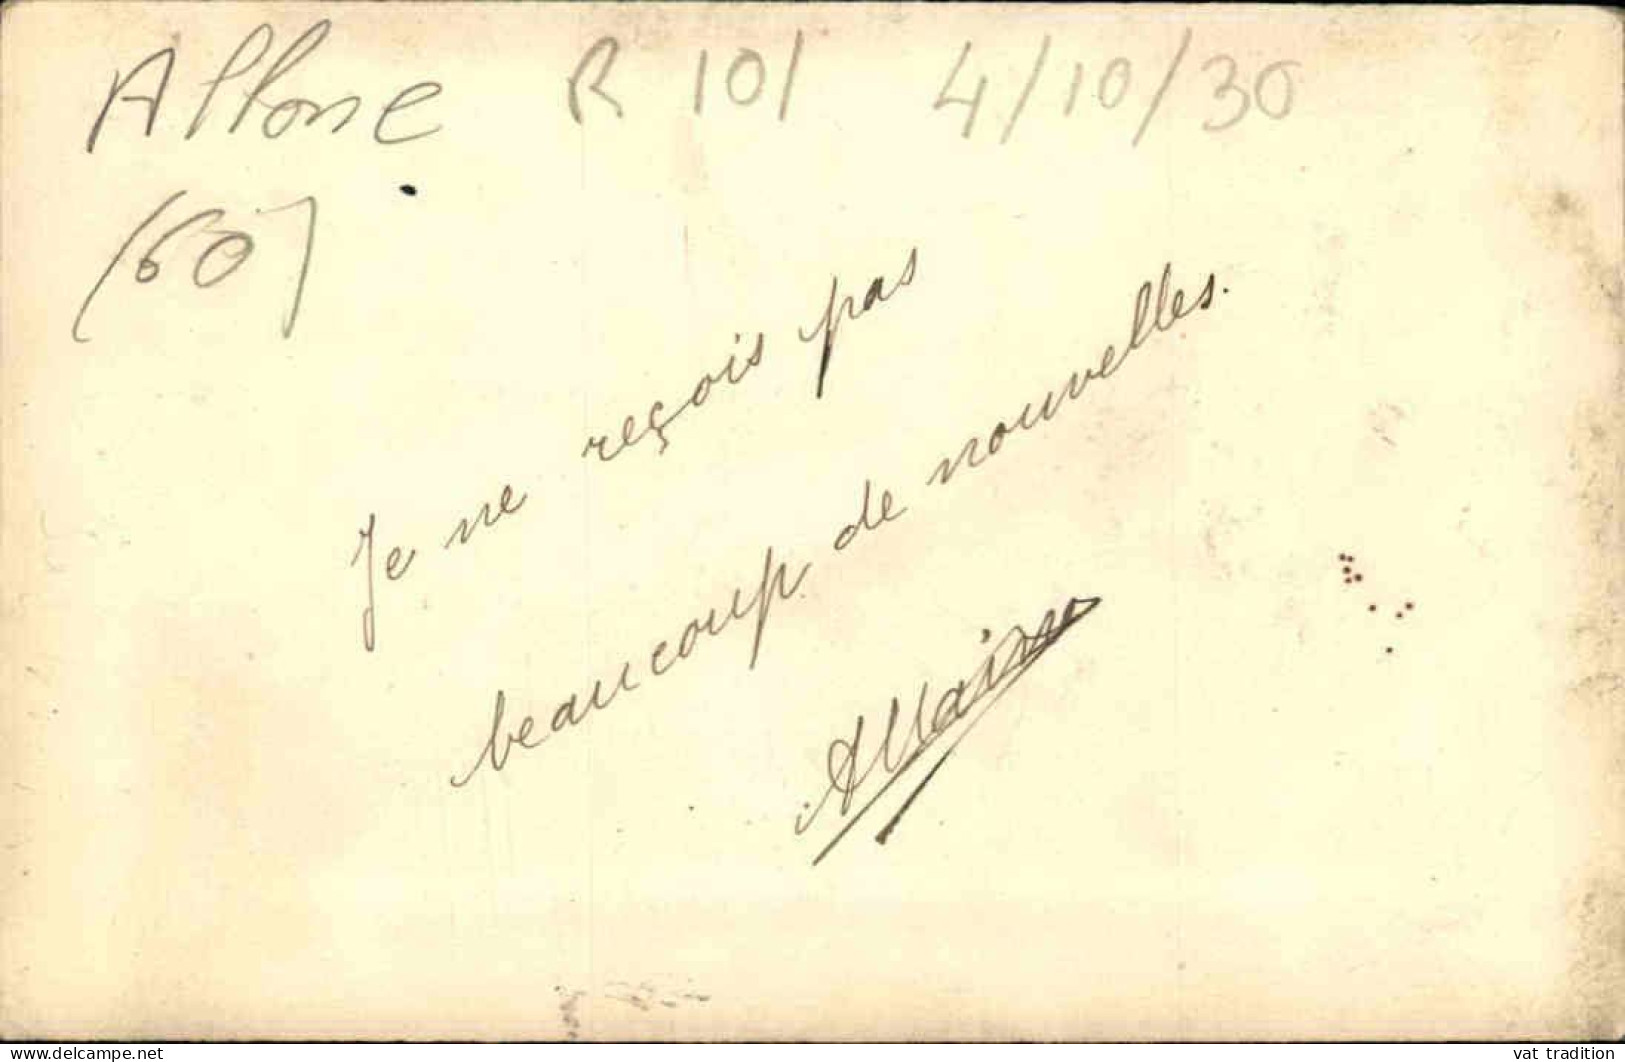 Allone R 101 4/10/30
(60)
Je ne reçois pas
beaucoup de nouvelles.
www.delcampe.net
vat_tradition